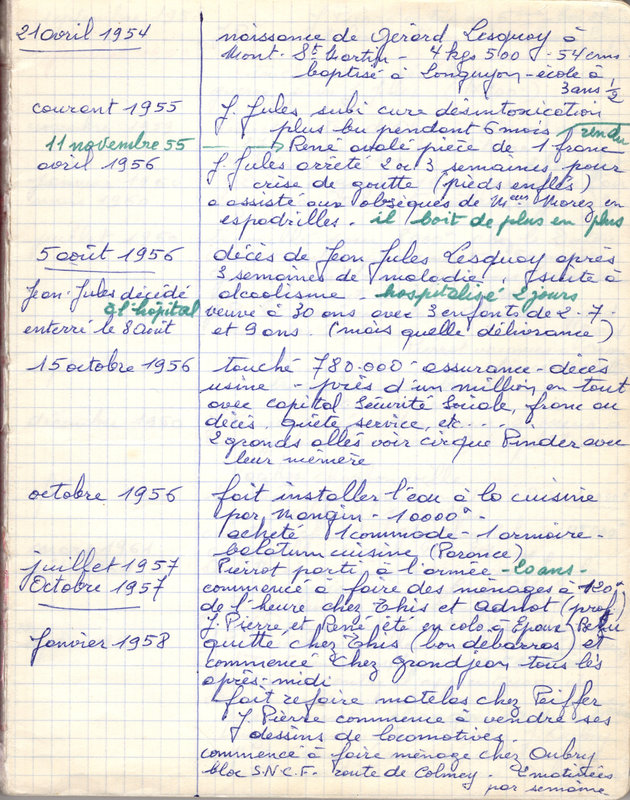 21 avril 1954 naissance de Gérard Lesquoy à
Mont-St Martin - 4 kgs 500 - 54 cms
baptisé à Longuyon - école à
3 ans 1/2
courant 1955 J. Jules subi cure désintoxication
plus bu pendant 6 mois rendu
11 novembre 55 → René avalé pièce de 1 franc
avril 1956 J. Jules arrêté 2 ou 3 semaines pour
crise de goutte (pieds enflés)
a assisté aux obsèques de Morez en
espadrilles. il boit de plus en plus
5 août 1956 décès de Jean Jules Lesquoy après
3 semaines de maladie, suite à
Jean-Jules décédé alcoolisme - hospitalisé 2 jours
à l'hôpital veuve à 30 ans avec 3 enfants de 2 - 7 -
enterré le 8 août et 9 ans. (mais quelle délivrance)
15 octobre 1956 touché 780.000 - assurance - décès
usine - près d'un million en tout
avec capital Sécurité Sociale, franc au
décès, quête, service, etc....
2 grands allés voir cirque Pinder avec
leur mémère
octobre 1956 fait installer l'eau à la cuisine
par Mangin - 10000 -
acheté 1 commode - 1 armoire -
balatum cuisine (Paronce)
juillet 1957 Pierrot parti à l'armée - 20 ans -
Octobre 1957 commencé à faire des ménages à 120
de l'heure chez This et Adnot (prof)
J. Pierre et René été en colo à
Janvier 1958 quitté chez This (bon débarras) et
commencé chez Grandjean tous les
après-midi
fait refaire matelas chez Peiffer
J. Pierre commence à vendre ses
dessins de locomotives.
commencé à faire ménage chez Aubry
bloc S.N.C.F. route de Colmey. 2 matinées
par semaine